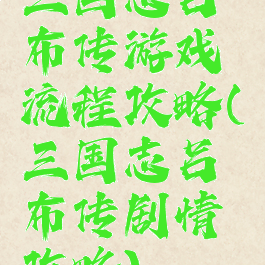 三国志吕
布传游戏
流程攻略(
三国志吕
布传剧情
攻略)